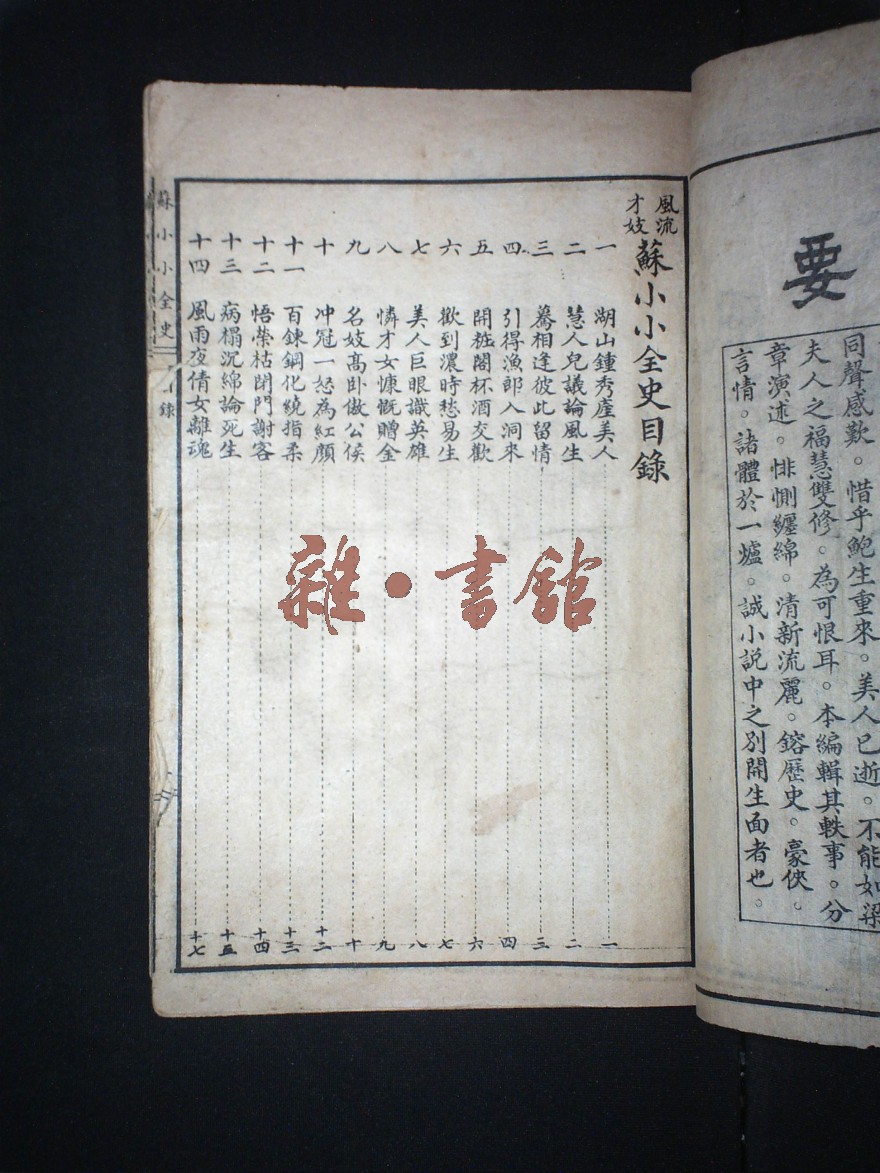 要
同聲感歎。惜乎鮑生重來。美人已逝。不能如梁
夫人之福慧雙修。為可恨耳。本編輯其軼事。分
章演述。悱惻纏綿。清新流麗。鎔歷史。豪俠。
言情。諸體於一爐。誠小說中之別開生面者也。
風流才妓
蘇小小全史目錄
一 湖山鍾秀產美人 一
二 慧人兒議論風生 二
三 驀相逢彼此留情 三
四 引得漁郎入洞來 四
五 開粧閣杯酒交歡 六
六 歡到濃時愁易生 七
七 美人巨眼識英雄 八
八 憐才女慷慨贈金 九
九 名妓高卧傲公侯 十
十 冲冠一怒為紅顏 十二
十一 百鍊鋼化繞指柔 十三
十二 悟榮枯閉門謝客 十四
十三 病榻沉綿論死生 十五
十四 風雨夜倩女離魂 十七
蘇小小全史
目錄
雜·書館